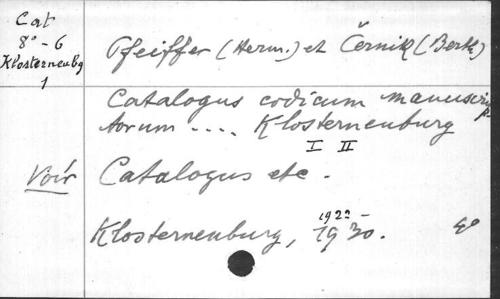 Cat
8° - 6
Klosterneubg
1
Pfeiffer (Herm.) et Černik (Berth)
Catalogus codicum manuscrip
torum .... Klosterneuburg
I II
Voir Catalogus etc.
Klosterneuburg, 1922 1930. 4°